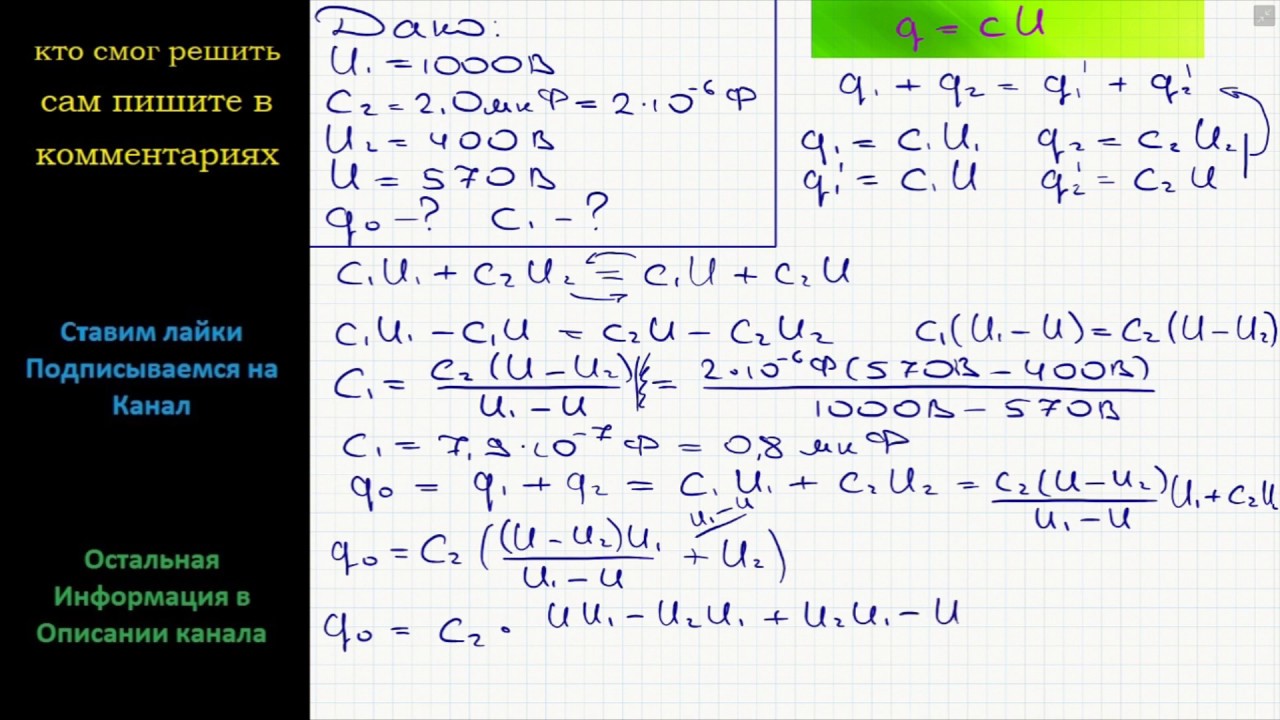 кто смог решить
сам пишите в
комментариях
Ставим лайки
Подписываемся на
Канал
Остальная
Информация в
Описании канала
Дано:
U₁ = 1000В
C₂ = 2,0мкФ = 2·10⁻⁶ Ф
U₂ = 400В
U = 570В
q₀ – ? C₁ – ?
q = cU
q₁ + q₂ = q₁' + q₂'
q₁ = C₁U₁ q₂ = C₂U₂
q₁' = C₁U q₂' = C₂U
C₁U₁ + C₂U₂ = C₁U + C₂U
C₁U₁ – C₁U = C₂U – C₂U₂ C₁(U₁ – U) = C₂(U – U₂)
C₁ = C₂(U – U₂) / U₁ – U = 2·10⁻⁶Ф(570В – 400В) / 1000В – 570В
C₁ = 7,9·10⁻⁷Ф = 0,8 мкФ
q₀ = q₁ + q₂ = C₁U₁ + C₂U₂ = C₂(U – U₂) / U₁ – U U₁ + C₂U
q₀ = C₂((U – U₂)U₁ / U₁ – U + U₂) U₁ – U
q₀ = C₂ · UU₁ – U₂U₁ + U₂U₁ – U